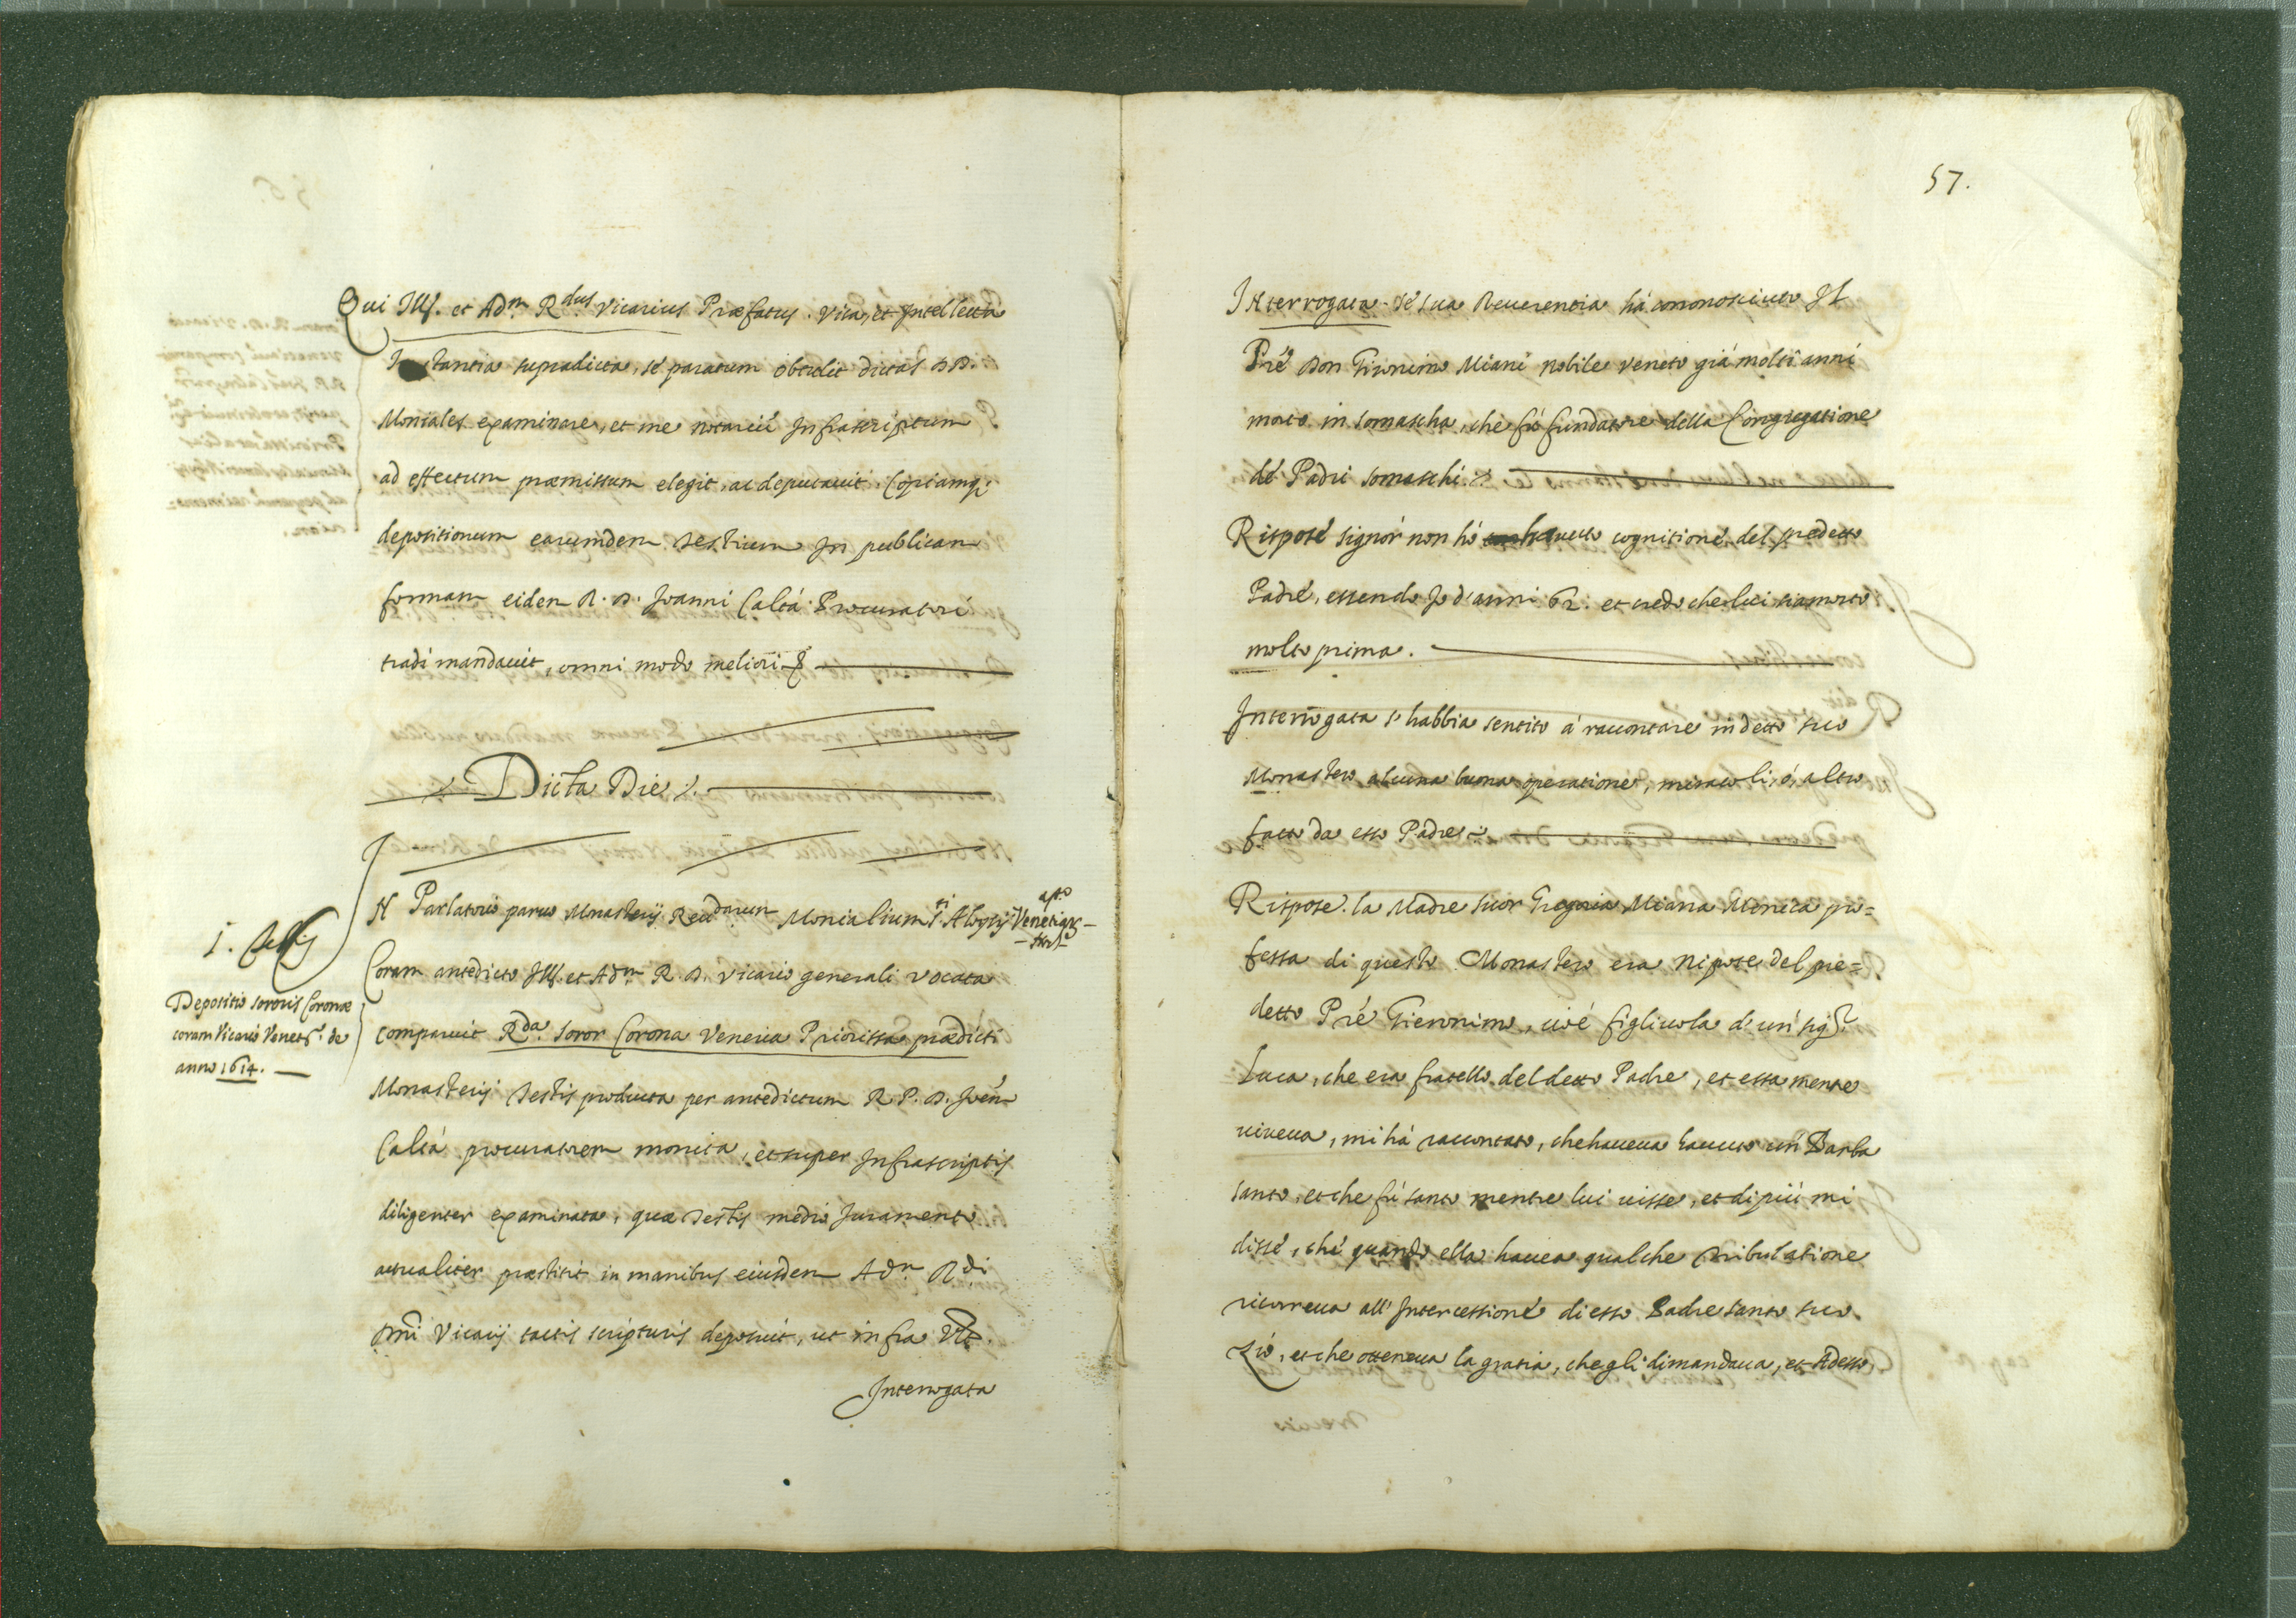 Qui Ill. et Adm. Rdus Vicarius Præfatus. Visa, et Intellecta
Instantia supradicta, sé paratum obtulit dictas DD.
Moniales examinare, et me notariũ Infrascriptum
ad effectum præmissum elegit, ac deputauit. Copiamq;
depositionum earumdem testium In publicam
formam eidem R. D. Joanni Caltá Procuratori
tradi mandauit, omni modo meliori &
Dicta Die
In Parlatorio paruo Monasterij Reudarum Monialium sti Aloysij Venetiar
Coram antedicto Ill. et Adm R. D. Vicario generali vocata
1. testis
Depositio sororis Coronæ
coram Vicario Venet. de
anno 1614.
comparuit Rda. Soror Corona Veneria Priorissa prædicti
Monasterij testis producta per antedictum R. P. D. Joen
Caltá procuratorem monita, et super Infrascriptis
diligenter examinata, quæ testis medio Juramento
actualiter præstitit in manibus eiusdem Adm Rdi
Dni Vicarij tactis scripturis deposuit, ut infra Vt.
Interrogata
57.
Interrogata. sé sua Reuerentia há cononosciuto Il
Pré Don Gironimo Miani nobile veneto giá molti anni
morto in somascha, ché fú fundatore della Congregatione
dé Padri somaschi.
Risposé signór non hó hauuto cognitioné del predetto
Padré, essendo Jo d'anni 62. et credo che lui sia morto
molto prima.
Interrogata s'habbia sentito á raccontare in detto suo
Monastero alcuna buona operatione, miracoli, ó, altro
fatto da esso Padre
Rispose. la Madre suor Gregoria Miana Monica pro=
fessa di questo Monastero era nipote del pre=
detto Pré Gieronimo, cioé figliuola d'un sigr.
Luca, che era fratello del detto Padre, et essa mentre
uiueua, mi há raccontato, che haueua hauuto un Barba
santo, et che fú santo mentre lui uisse, et di piú mi
dissé, ché quando ella hauea qualche tribulatione
ricorreua all'Intercessioné di esso Padre santo suo
Zio, et che otteneua la gratia, che gli dimandaua, et Adesso